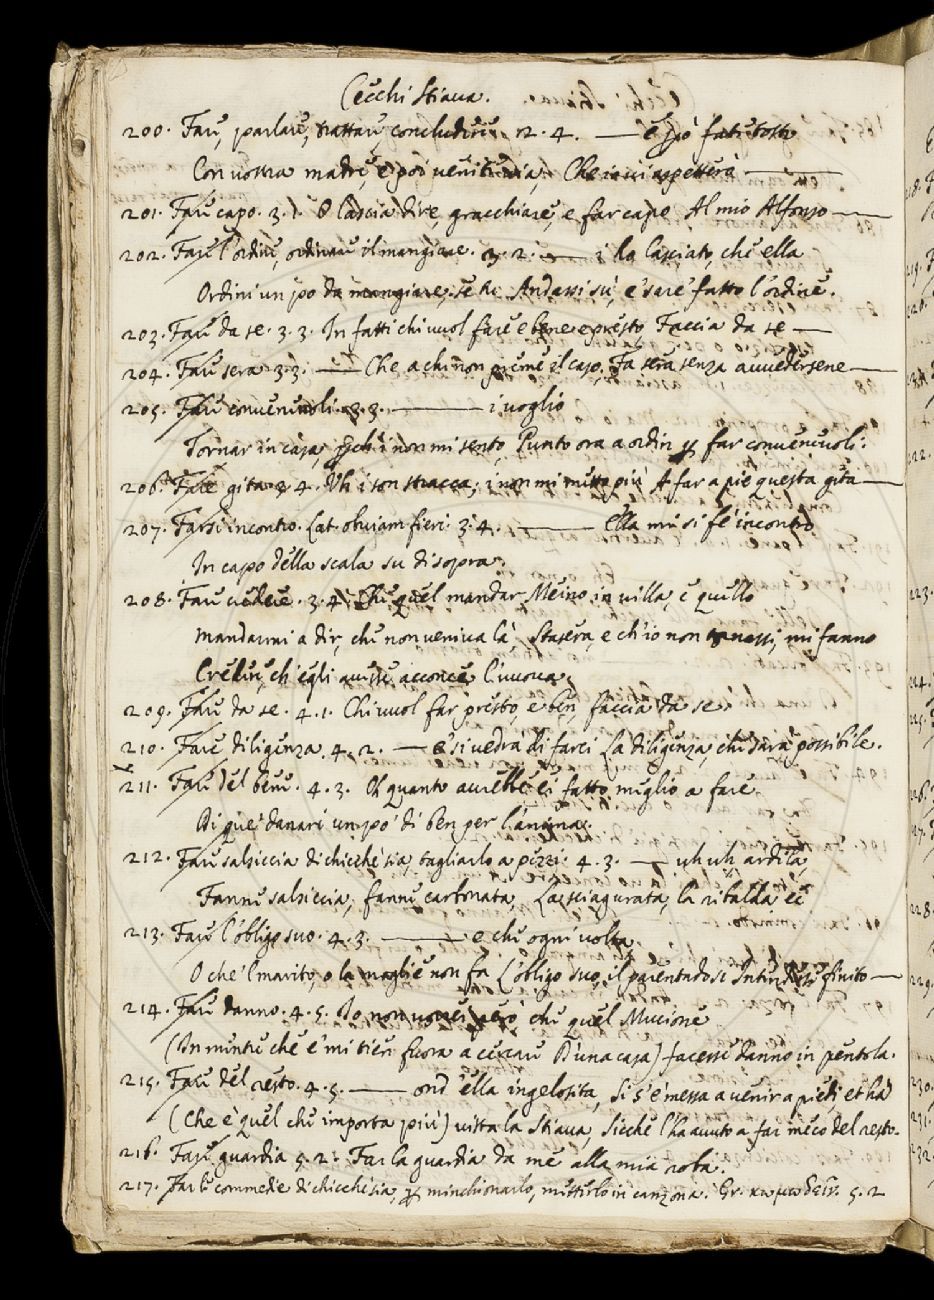 Cecchi Stiava.
200. Fare, parlare, trattare, concludere. 2. 4. — e poi fate tosto
Con vostra madre, e poi venite via, Che io vi aspetterò —
201. Far capo. 3. 1. O lascia dire, gracchiare, e far capo Al mio Alfonso —
202. Fare l'ordine, ordinare il mangiare. 3. 2. — i' ho lasciato, che ella
Ordini un po da mangiare, se ne Andassi su, e sarè fatto l'ordine.
203. Fare da se. 3. 3. In fatti chi vuol fare e bene e presto Faccia da se —
204. Fare sera 3. 3. — Che a chi non preme il caso, Fa sera senza avvedersene —
205. Fare convenevoli. 3. 3. — i voglio
Tornar in casa, perchè i non mi sento, Punto ora a ordin per far convenevoli:
206. Fare gita 3. 4. Uh i son stracca, i non mi metto più A far a piè questa gita —
207. Farsi incontro. Lat. obviam fieri. 3. 4. — ella mi si fè incontro
In capo della scala su di sopra.
208. Fare credere. 3. 4. Che quel mandar Meino in villa, e quello
Mandarmi a dir, che non veniva là, Stasera, e ch'io non tornassi, mi fanno
Creder, ch'egli avesse acconce l'uova.
209. Fare da se. 4. 1. Chi vuol far presto, e ben, faccia da se.
210. Fare diligenza 4. 2. — e si vedrà di farci La diligenza, che sarà possibile.
211. Fare del bene. 4. 3. Oh quanto avrebbe ei fatto meglio a fare
Di que' danari un po' di ben per l'anima.
212. Fare salsiccia di chicchè sia, tagliarlo a pezzi. 4. 3. — uh uh ardita,
Fanne salsiccia, fanne carbonata, La sciagurata, la ribalda ec
213. Fare l'obligo suo. 4. 3. — e che ogni volta,
O che 'l marito, o la moglie non fa L'obligo suo, il parentado s' finito —
214. Fare danno. 4. 5. Io non vorrei però che quel Mucione
(In mentre che e' mi tien fuora a cercare D'una casa) facesse danno in pentola.
215. Fare del resto. 4. 5. — ond'ella ingelosita, Si s'è messa a venir a piedi, et ha
(Che è quel che importa più) vista la Stiava, Sicchè l'ha avuto a far meco del resto.
216. Fare guardia 5. 2. Far la guardia da me alla mia roba.
217. Far le commedie di chicchè sia per minchionarlo, metterlo in canzona. Gr. κωμωδεῖν. 5. 2